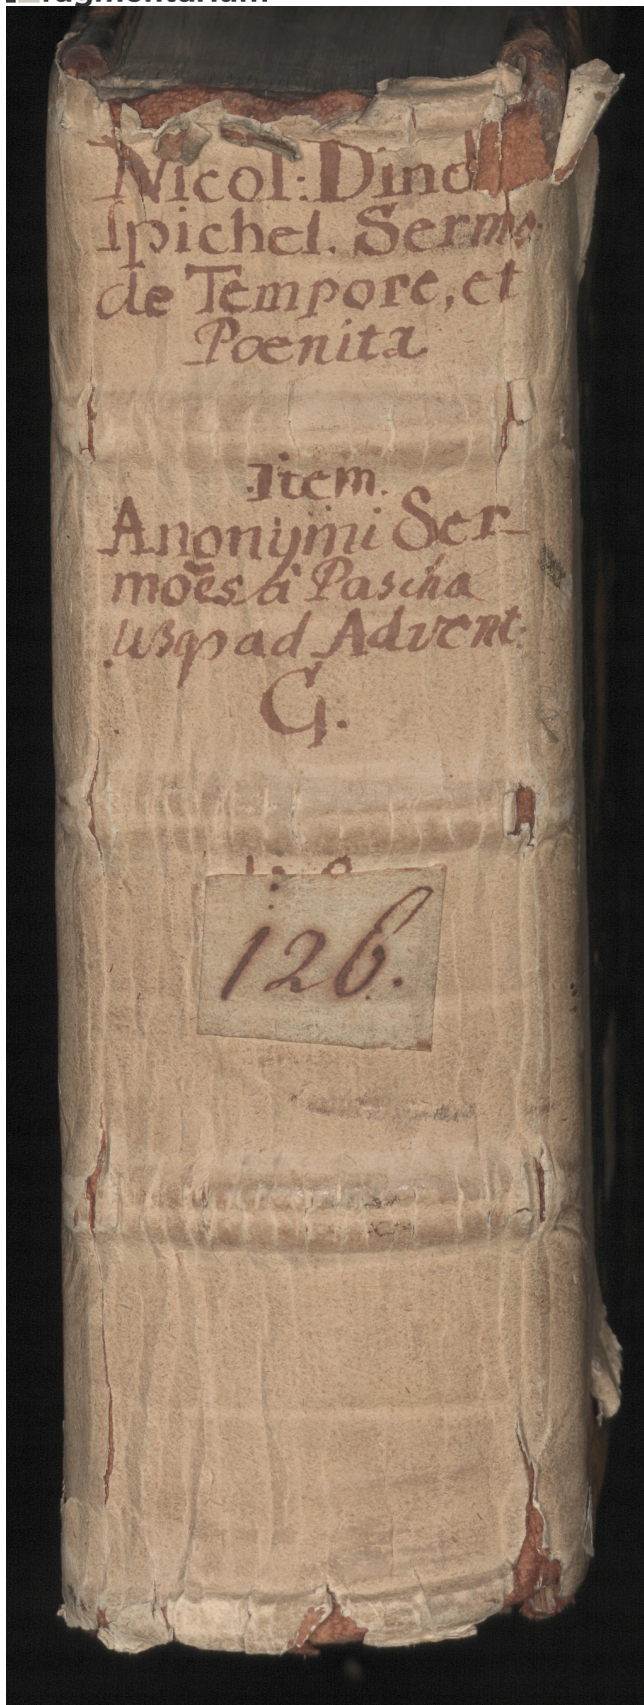 Nicol: Dind
spichel. Sermo
de Tempore, et
Pœnita
Item.
Anonymi Ser-
moẽs à Pascha
usqꝫ ad Advent.
G.
126.